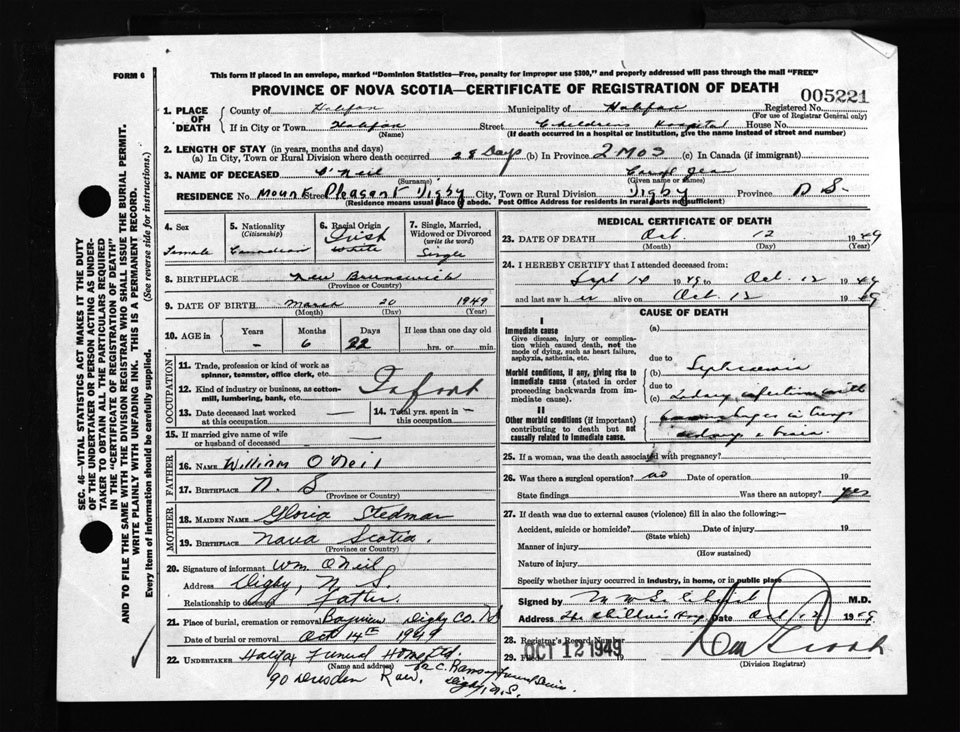 FORM 6
This form if placed in an envelope, marked "Dominion Statistics—Free, penalty for improper use $300," and properly addressed will pass through the mail "FREE"
PROVINCE OF NOVA SCOTIA—CERTIFICATE OF REGISTRATION OF DEATH
005221
1. PLACE OF DEATH County of Halifax Municipality of Halifax Registered No.
(For use of Registrar General only)
If in City or Town Halifax Street Childrens Hospital House No.
(Name) (If death occurred in a hospital or institution, give the name instead of street and number)
2. LENGTH OF STAY (in years, months and days)
(a) In City, Town or Rural Division where death occurred 28 Days (b) In Province 2 MOS (c) In Canada (if immigrant)
3. NAME OF DECEASED O'Neil Carol Jean
(Surname) (Given name or names)
RESIDENCE No. Mount Street Pleasant Digby City, Town or Rural Division Digby Province N S.
(Residence means usual place of abode. Post Office Address for residents in rural parts not sufficient)
4. Sex Female
5. Nationality (Citizenship) Canadian
6. Racial Origin Irish White
7. Single, Married, Widowed or Divorced (write the word) Single
8. BIRTHPLACE New Brunswick
(Province or Country)
9. DATE OF BIRTH March 20 1949
(Month) (Day) (Year)
10. AGE in Years Months Days If less than one day old
- 6 22 hrs. or min.
OCCUPATION
11. Trade, profession or kind of work as spinner, teamster, office clerk, etc.
12. Kind of industry or business, as cotton-mill, lumbering, bank, etc. Infant
13. Date deceased last worked at this occupation —
14. Total yrs. spent in this occupation —
15. If married give name of wife or husband of deceased —
FATHER
16. NAME William O'Neil
17. BIRTHPLACE N. S
(Province or Country)
MOTHER
18. MAIDEN NAME Gloria Stedman
19. BIRTHPLACE Nova Scotia
(Province or Country)
20. Signature of informant Wm. O'Neil
Address Digby, N S.
Relationship to deceased Father.
21. Place of burial, cremation or removal Bayview Digby Co. NS
Date of burial or removal Oct 14th 1949
22. UNDERTAKER Halifax Funeral Home Ltd.
(Name and address)
90 Dresden Row.
Digby, N.S.
MEDICAL CERTIFICATE OF DEATH
23. DATE OF DEATH Oct. 12 1949
(Month) (Day) (Year)
24. I HEREBY CERTIFY that I attended deceased from:
Sept 14 1949 to Oct 12 1949
and last saw her alive on Oct. 12 1949
CAUSE OF DEATH
I
Immediate cause (a)
Give disease, injury or complication which caused death, not the mode of dying, such as heart failure, asphyxia, asthenia, etc.
due to
Morbid conditions, if any, giving rise to immediate cause (stated in order proceeding backwards from immediate cause). (b)
due to
(c) with
II
Other morbid conditions (if important) contributing to death but not causally related to immediate cause.
25. If a woman, was the death associated with pregnancy?
26. Was there a surgical operation? no Date of operation 19
State findings Was there an autopsy? yes
27. If death was due to external causes (violence) fill in also the following:—
Accident, suicide or homicide? Date of injury 19
(State which)
Manner of injury
(How sustained)
Nature of injury
Specify whether injury occurred in industry, in home, or in public place
Signed by M.D.
Address Date Oct 12 1949
28. Registrar's Record Number
29. Filed OCT 12 1949 19
(Division Registrar)
SEC. 46—VITAL STATISTICS ACT MAKES IT THE DUTY
OF THE UNDERTAKER OR PERSON ACTING AS UNDER-
TAKER TO OBTAIN ALL THE PARTICULARS REQUIRED
IN THE "CERTIFICATE OF REGISTRATION OF DEATH"
AND TO FILE THE SAME WITH THE DIVISION REGISTRAR WHO SHALL ISSUE THE BURIAL PERMIT.
WRITE PLAINLY WITH UNFADING INK. THIS IS A PERMANENT RECORD.
Every item of information should be carefully supplied. (See reverse side for instructions.)